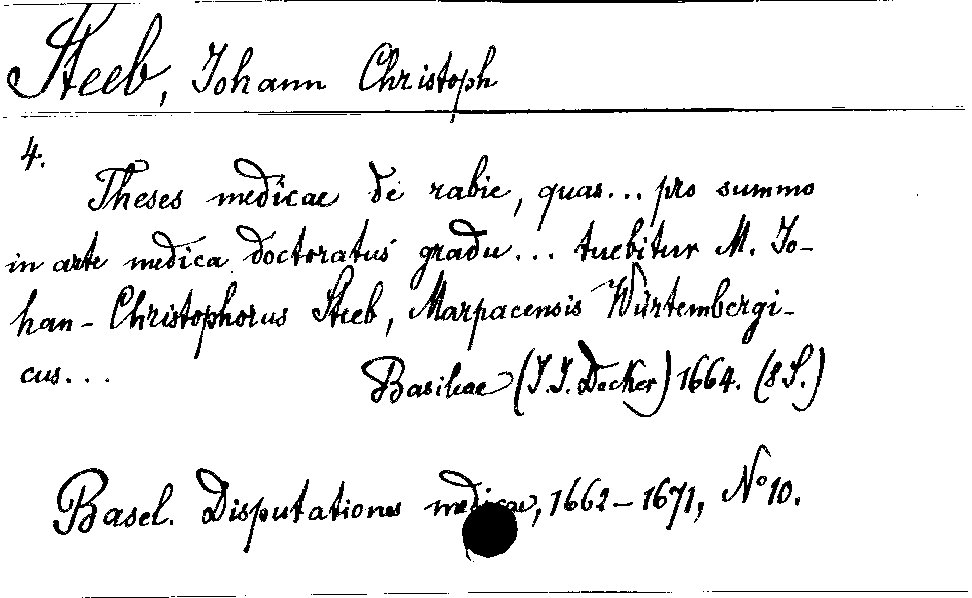 Steeb, Johann Christoph
4.
Theses medicae de rabie, quas... pro summo
in arte medica doctoratus gradu... tuebitur M. Jo-
han- Christophorus Steeb, Marpacensis Würtembergi-
cus...
Basileae (J. J. Decker) 1664. (8 S.)
Basel. Disputationes medicae, 1662-1671, No 10.